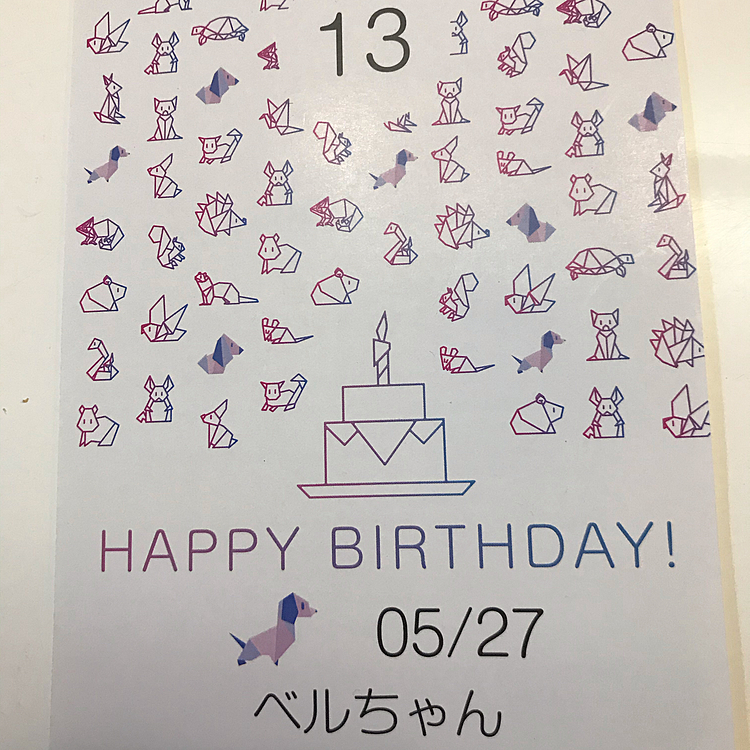 13
HAPPY BIRTHDAY!
05/27
ベルちゃん